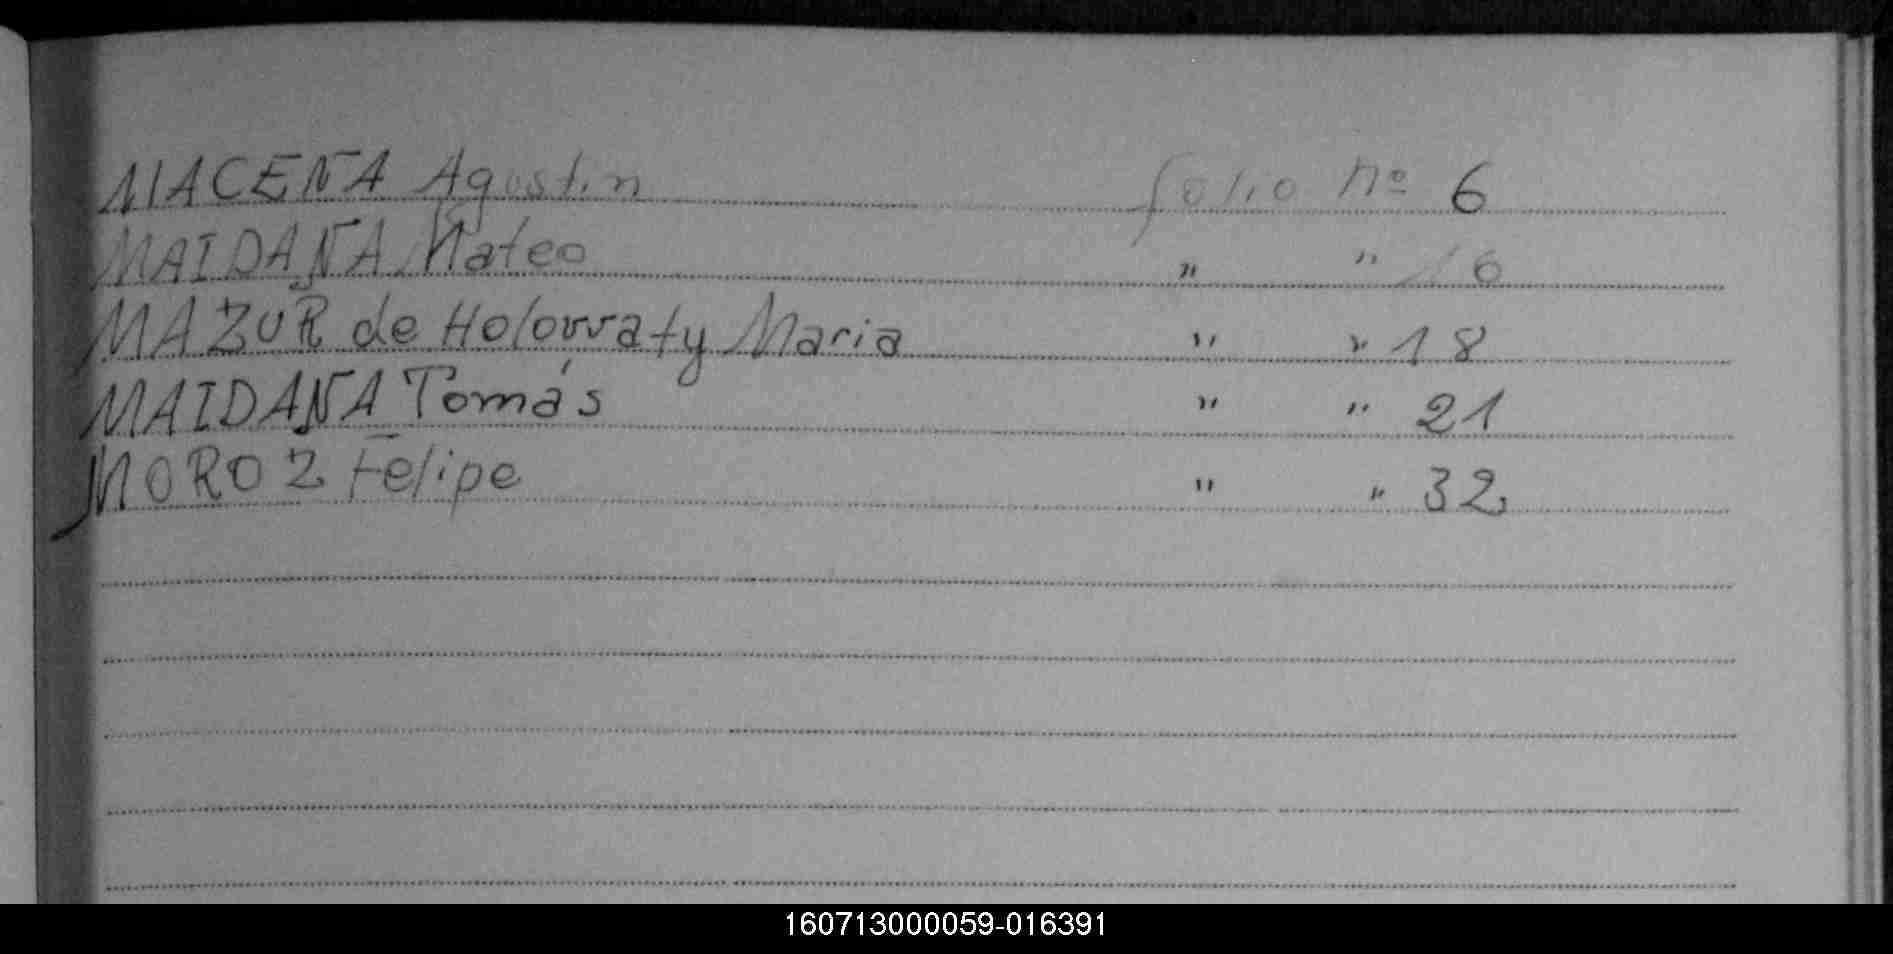 MACEÑA Agustin folio nº 6
MAIDANA Mateo " " 16
MAZUR de Holowaty Maria " " 18
MAIDANA Tomás " " 21
MOROZ Felipe " " 32
160713000059-016391